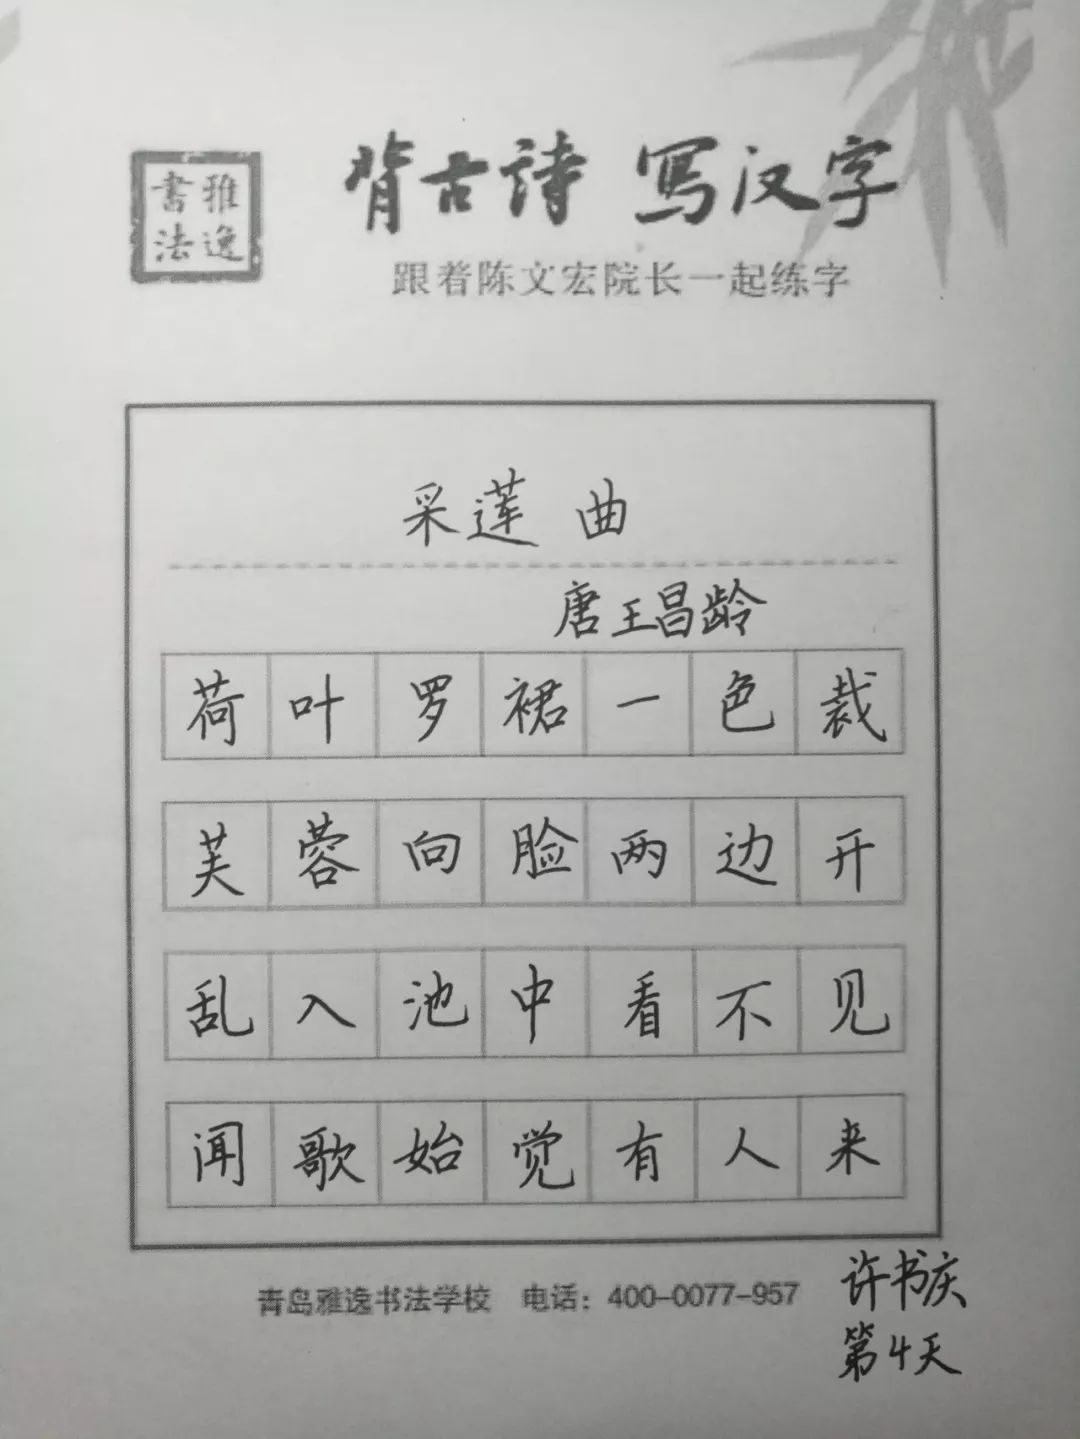 雅逸
书法
背古诗 写汉字
跟着陈文宏院长一起练字
采莲曲
唐王昌龄
荷叶罗裙一色裁
芙蓉向脸两边开
乱入池中看不见
闻歌始觉有人来
青岛雅逸书法学校 电话：400-0077-957
许书庆
第4天